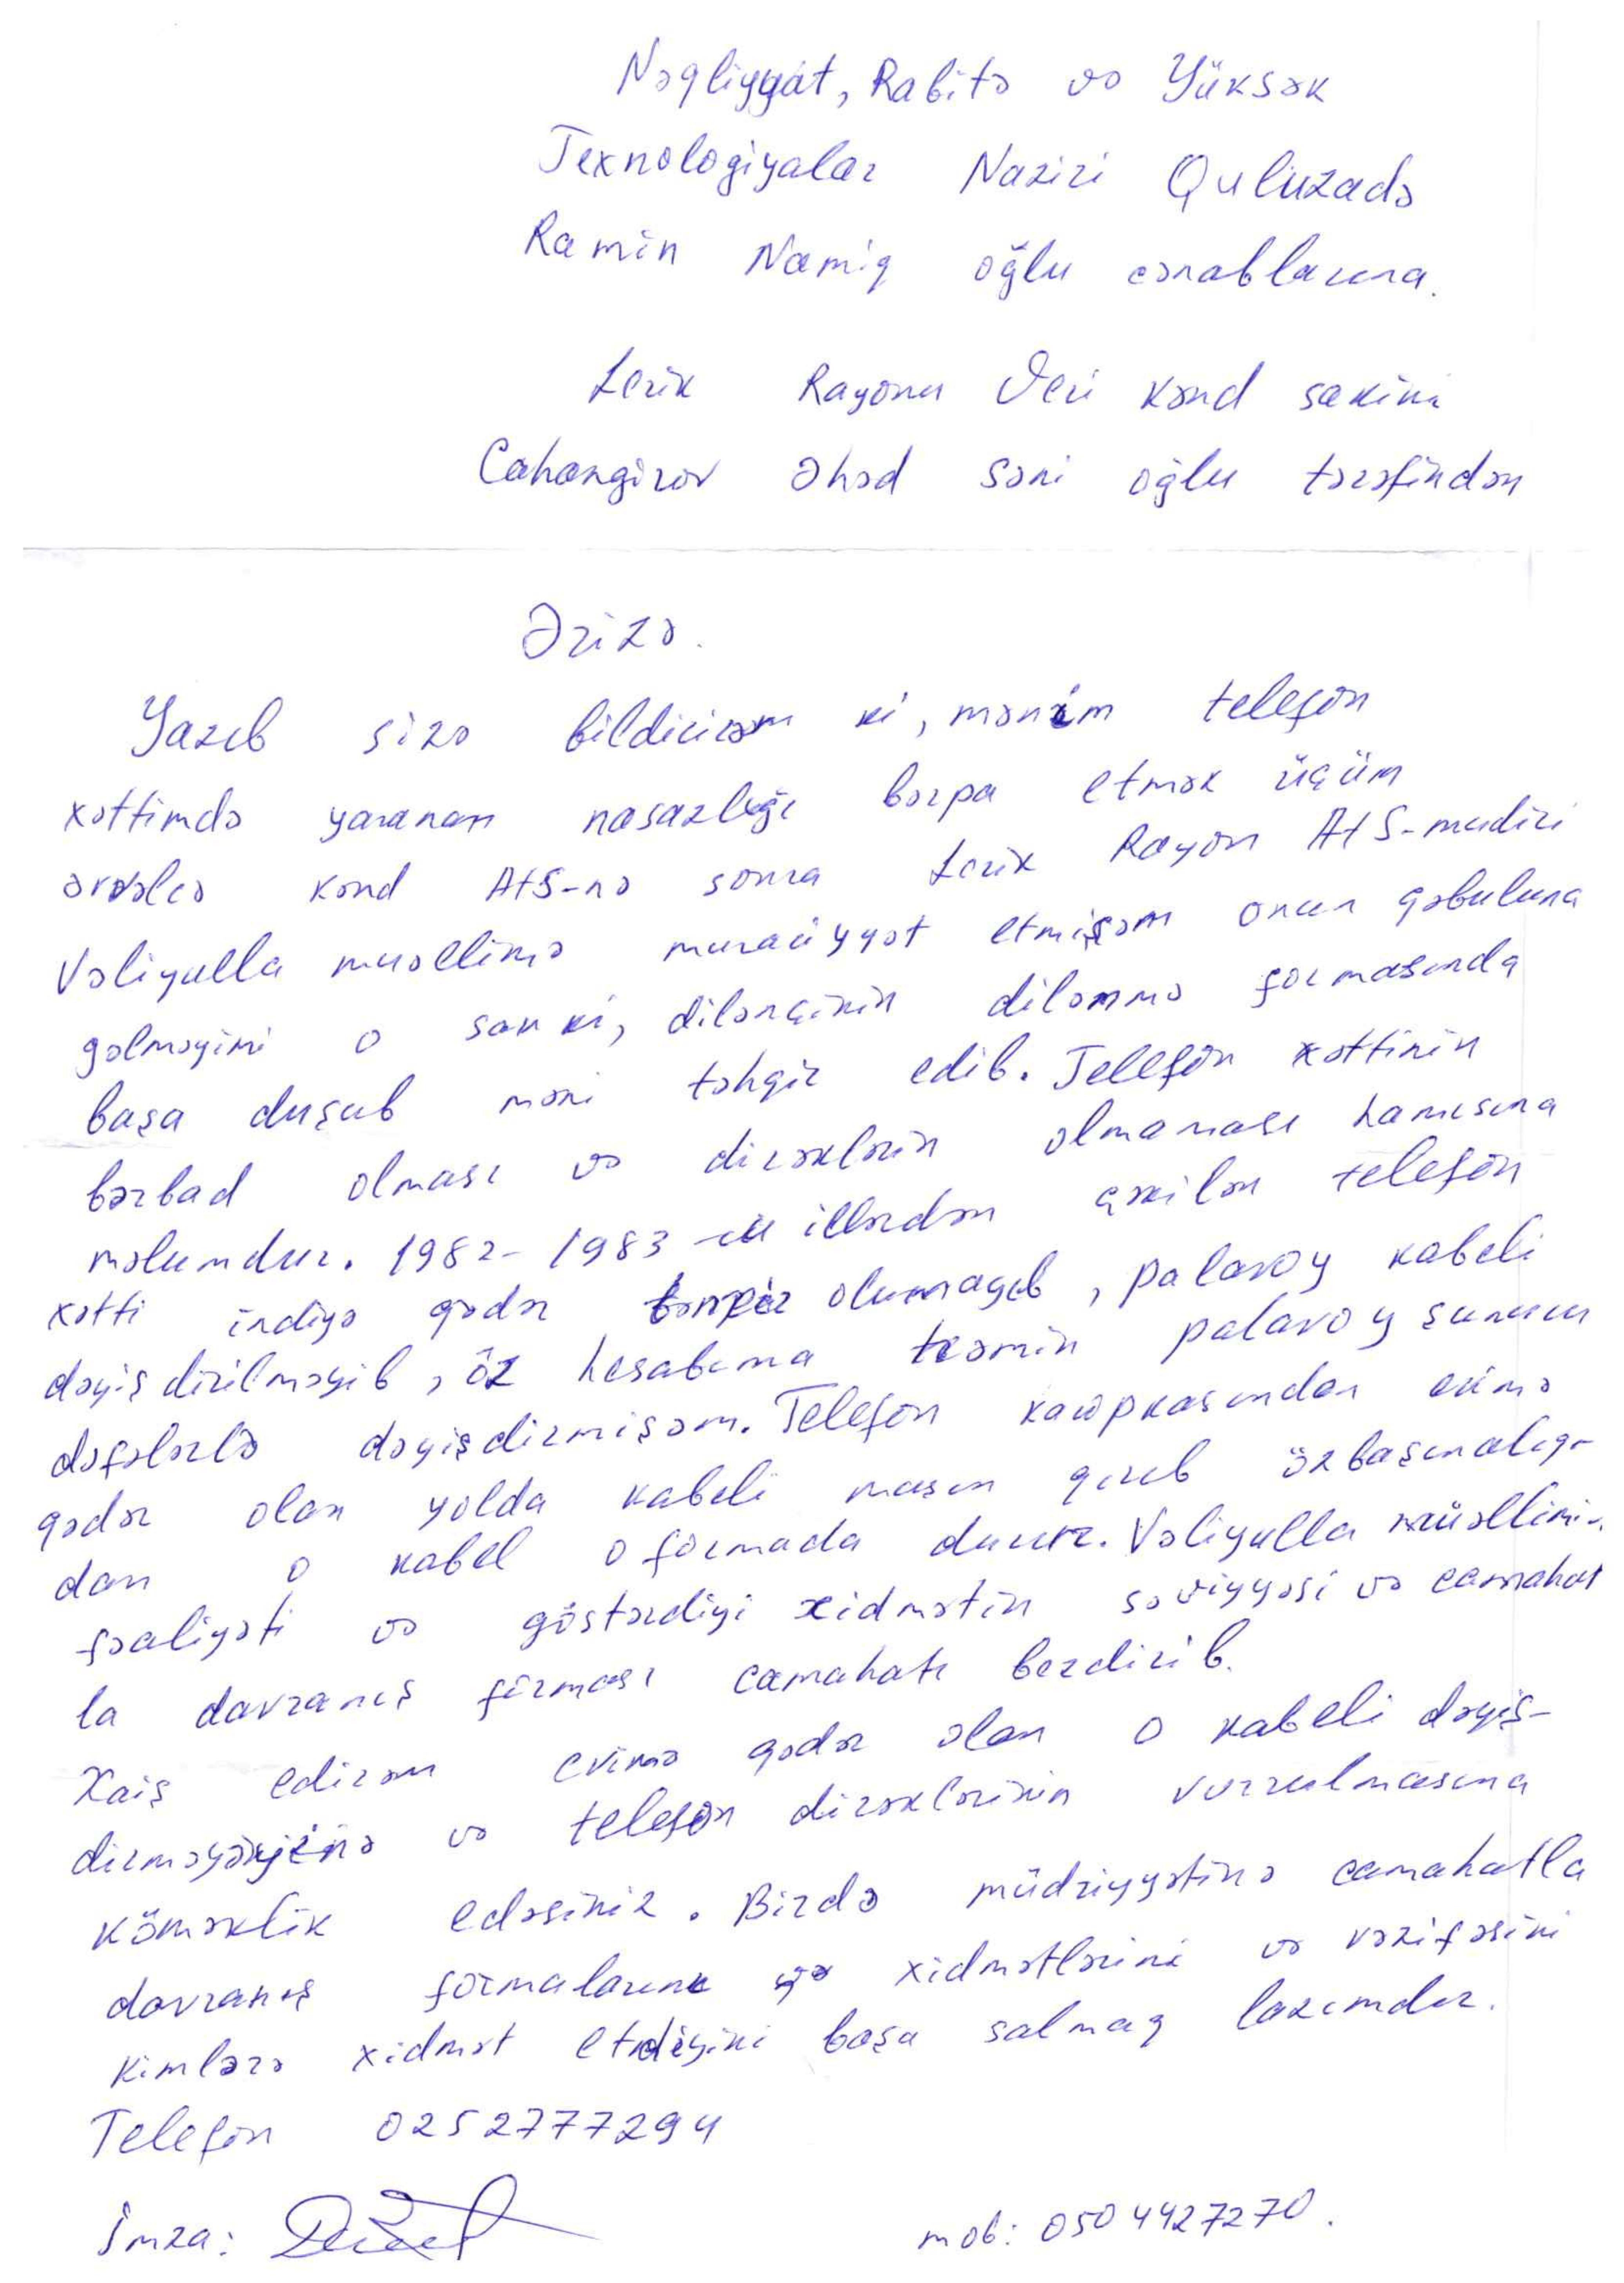 Nəqliyyat, Rabitə və Yüksək
Texnologiyalar Naziri Quluzadə
Ramin Namiq oğlu cənablarına.
Lerik Rayonu Veri kənd sakini
Cahangirov Əhəd Səni oğlu tərəfindən
Ərizə.
Yazıb sizə bildirirəm ki, mənim telefon
xəttimdə yaranan nasazlığı bərpa etmək üçün
əvvəlcə kənd AtS-nə sonra Lerik Rayon AtS-mudiri
Vəliyulla muəllimə muraciyyət etmişəm onun qəbuluna
gəlməyimi o san ki, dilənçinin dilənmə formasında
başa duşub məni təhqir edib. Telefon xəttinin
bərbad olması və dirəklərin olmaması hamısına
məlumdur. 1982-1983-cü illərdən çəkilən telefon
xətti indiyə qədər təmir olunmayıb, palavoy kabeli
dəyişdirilməyib, öz hesabıma təmin palavoy şunun
dəfələrlə dəyişdirmişəm. Telefon karopkasından evimə
qədər olan yolda kabeli maşın qırıb özbaşınalıq-
dan o kabel o formada durur. Vəliyulla müəllimin
fəaliyəti və göstərdiyi xidmətin səviyyəsi və camahat
la davranış forması camahatı bezdirib.
Xaiş edirəm evimə qədər olan o kabeli dəyiş-
və telefon dirəklərinin vurulmasına
köməklik edəsiniz. Birdə müdriyyətinə camahatla
davranış formalarını və xidmətlərini və vəzifəsini
kimlərə xidmət etdiyini başa salmaq lazımdır.
Telefon 0252777294
İmza:
mob: 0504427270.